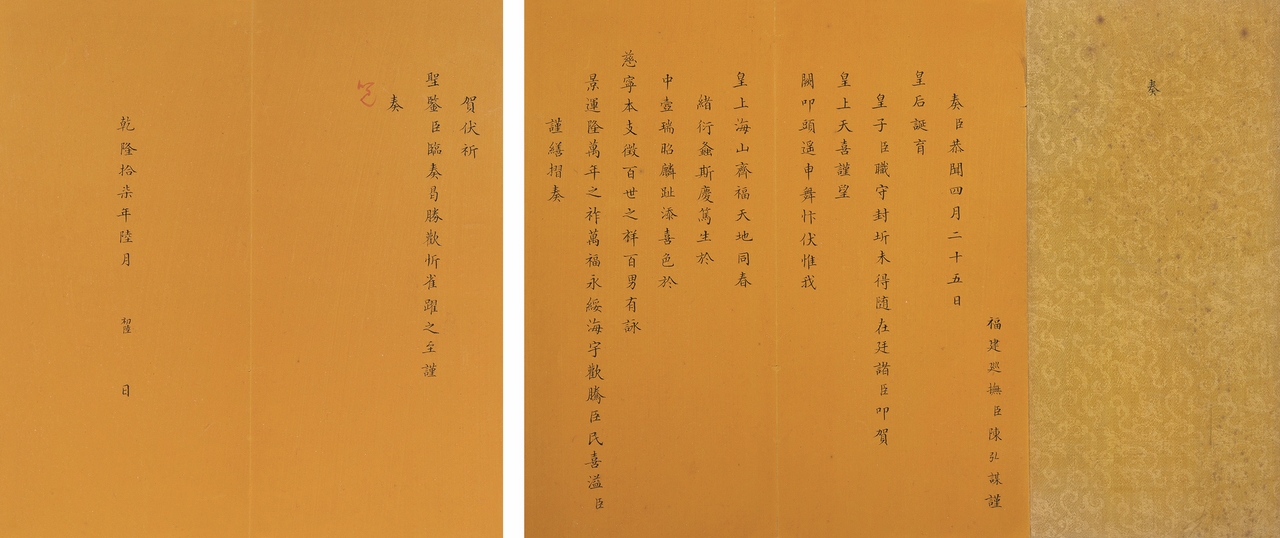 奏
福建巡撫臣陳弘謀謹
奏臣恭聞四月二十五日
皇后誕育
皇子臣職守封圻未得隨在廷諸臣叩賀
皇上天喜謹望
闕叩頭遙申舞忭伏惟我
皇上海山齊福天地同春
緒衍螽斯慶篤生於
中壼瑞昭麟趾添喜色於
慈寧本支徵百世之祥百男有詠
景運隆萬年之祚萬福永綏海宇歡騰臣民喜溢臣
謹繕摺奏
賀伏祈
聖鑒臣臨奏曷勝歡忻雀躍之至謹
奏
覽
乾隆拾柒年陸月初陸日